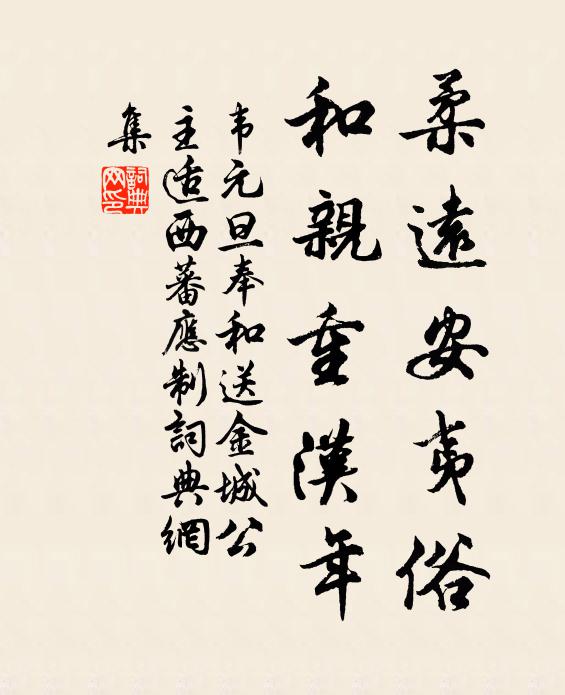 柔遠安夷俗
和親重漢年
韦元旦奉和送金城公
主适西蕃應制詞典網
集
詞典
网印